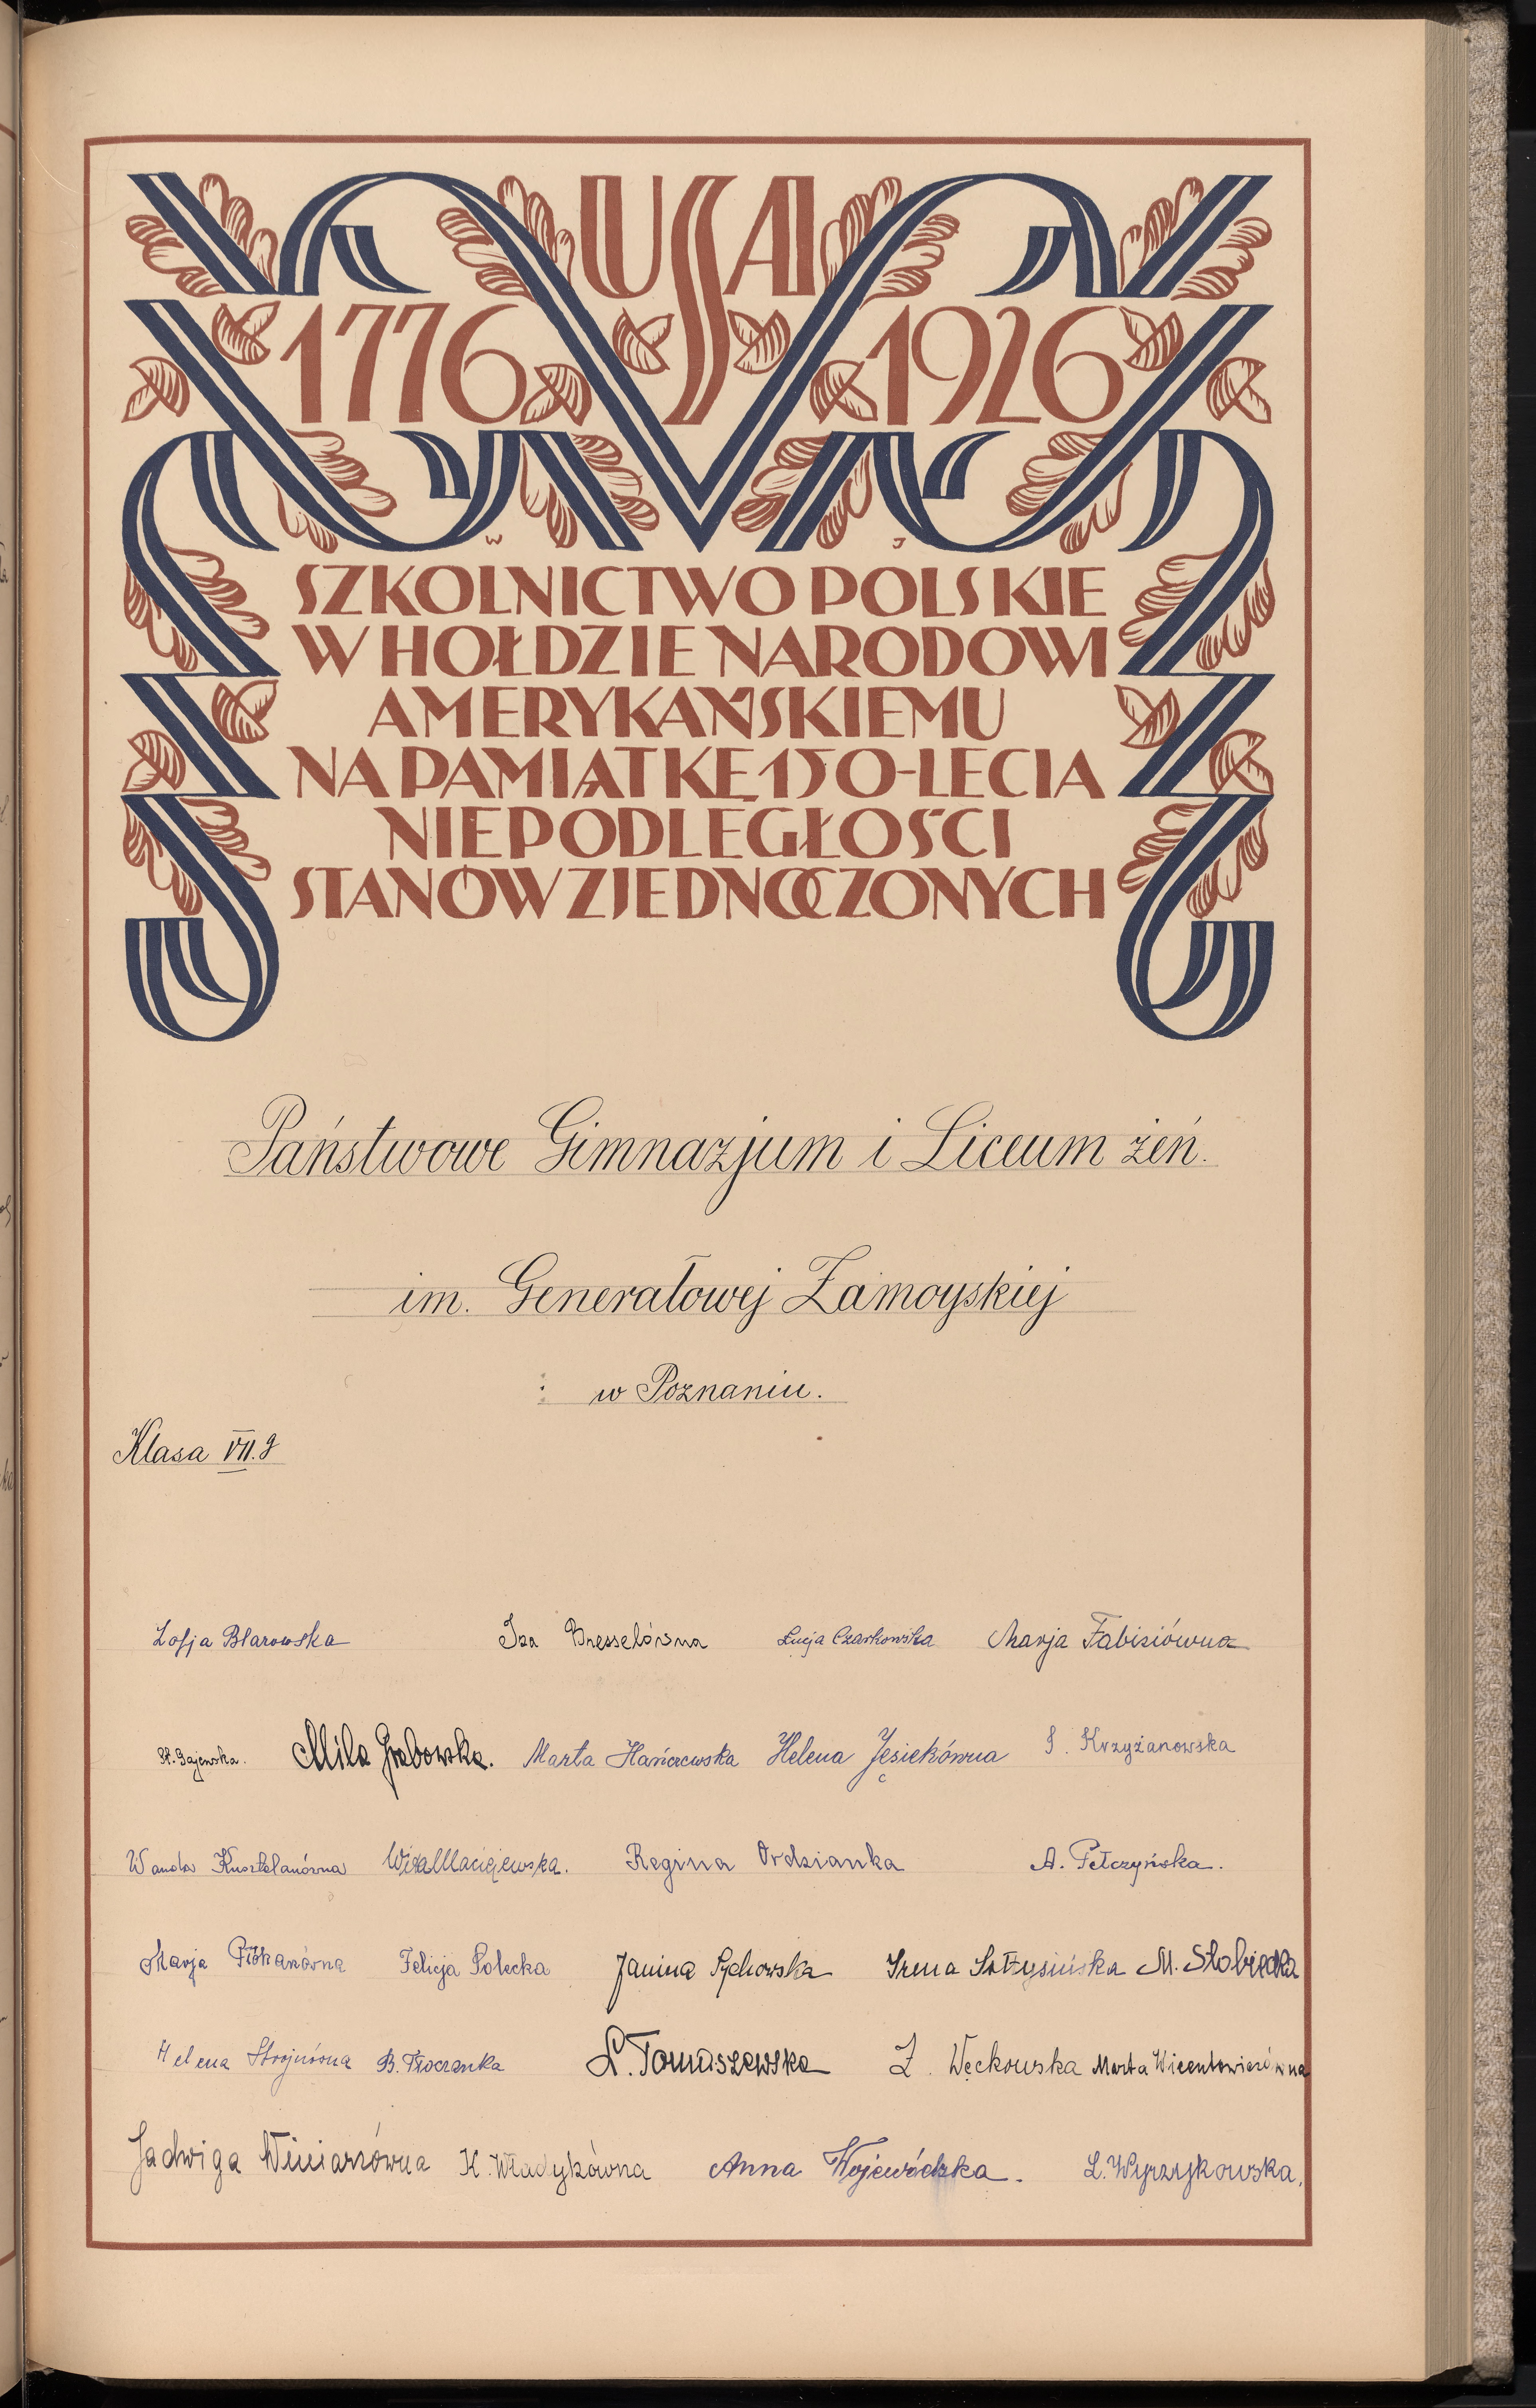 USA
1776 1926
W J
SZKOLNICTWO POLSKIE
W HOŁDZIE NARODOWI
AMERYKAŃSKIEMU
NA PAMIĄTKĘ 150-LECIA
NIEPODLEGŁOŚCI
STANÓW ZJEDNOCZONYCH
Państwowe Gimnazjum i Liceum żeń.
im. Generałowej Zamoyskiej
w Poznaniu.
Klasa VII. g
Zofja Blarowska Iza Bresselówna Łucja Czarkowska Marja Fabisiówna
St. Gajewska. Mila Grabowska. Marta Hańczewska Helena Jęsiekówna I. Krzyżanowska
Wanda Kusztelanówna Wisia Maciejewska. Regina Ordzianka A. Pełczyńska.
Marja Felicja Polecka Janina Pychowska Irena Sołtysińska M. Słobiecka
Helena Strojnówna B. Tłoczanka L. Tomaszewska Z. Węckowska Marta Wicentowiczówna
Jadwiga Winiarzówna K. Władykówna Anna Wojewódzka. L. Wyrzykowska.